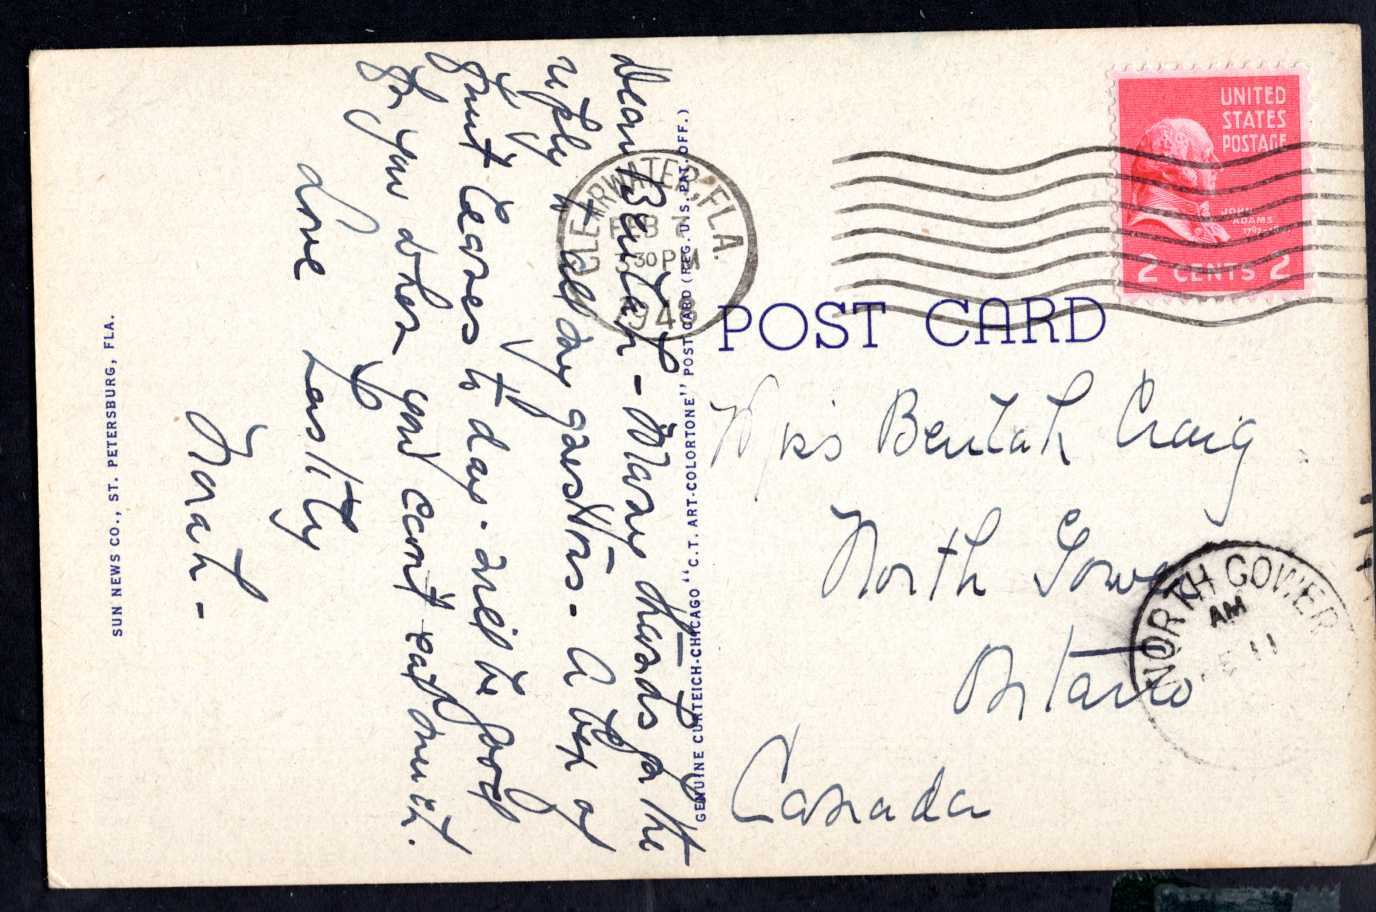 Dear Beulah - Many thanks for the
reply to all my questions - A box of
fruit leaves to day. and be good
for you when you can't eat much.
Love
Norah -
SUN NEWS CO., ST. PETERSBURG, FLA.
GENUINE CURTEICH-CHICAGO "C.T. ART-COLORTONE" POST CARD (REG. U.S. PAT. OFF.)
CLEARWATER, FLA.
FEB
30 PM
194
UNITED
STATES
POSTAGE
JOHN
ADAMS
2 CENTS 2
POST CARD
Miss Beulah Craig
North Gower
Ontario
Canada
NORTH GOWER
AM
11